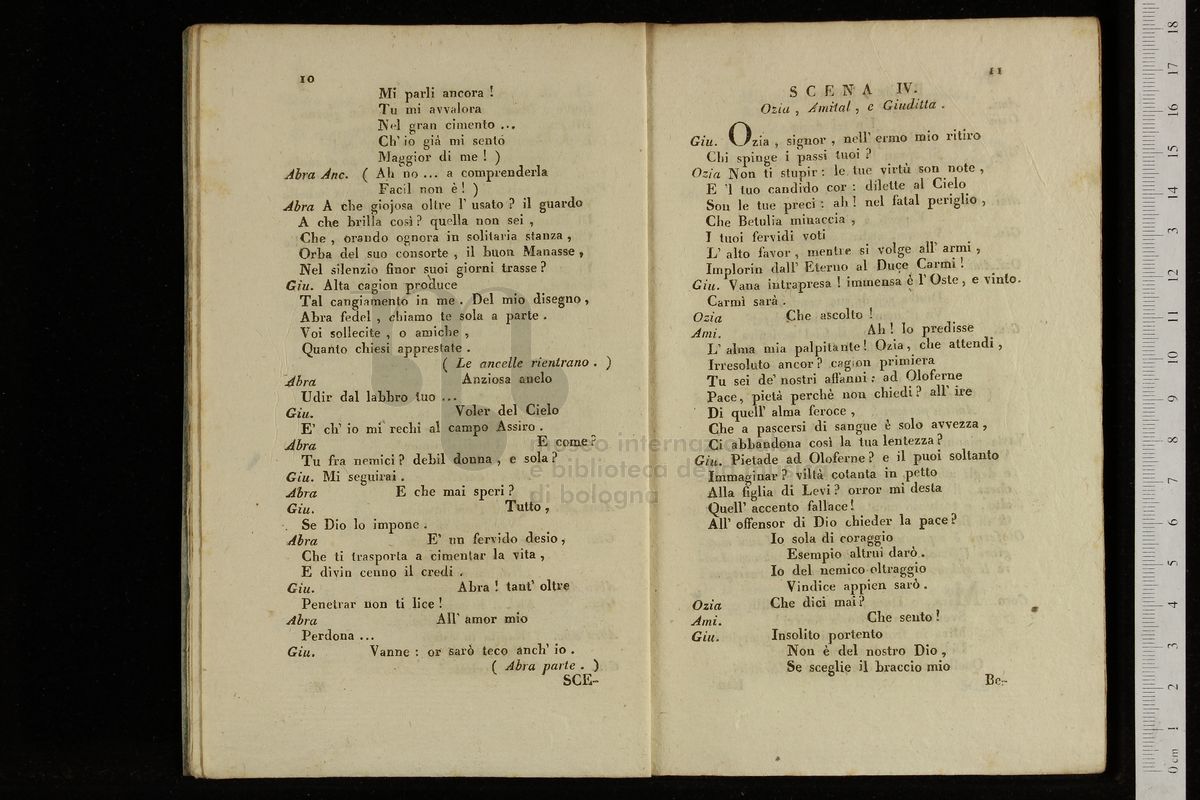 10
Mi parli ancora !
Tu mi avvalora
Nel gran cimento ...
Ch' io giá mi sento
Maggior di me ! )
Abra Anc. ( Ah no ... a comprenderla
Facil non è ! )
Abra A che giojosa oltre l' usato ? il guardo
A che brilla così ? quella non sei ,
Che , orando ognora in solitaria stanza ,
Orba del suo consorte , il buon Manasse ,
Nel silenzio finor suoi giorni trasse ?
Giu. Alta cagion produce
Tal cangiamento in me . Del mio disegno ,
Abra fedel , chiamo te sola a parte .
Voi sollecite , o amiche ,
Quanto chiesi apprestate .
( Le ancelle rientrano . )
Abra Anziosa anelo
Udir dal labbro tuo ...
Giu. Voler del Cielo
E' ch' io mi rechi al campo Assiro .
Abra E come ?
Tu fra nemici ? debil donna , e sola ?
Giu. Mi seguirai .
Abra E che mai speri ?
Giu. Tutto ,
Se Dio lo impone .
Abra E' un fervido desio ,
Che ti trasporta a cimentar la vita ,
E divin cenno il credi .
Giu. Abra ! tant' oltre
Penetrar non ti lice !
Abra All' amor mio
Perdona ...
Giu. Vanne : or sarò teco anch' io .
( Abra parte . )
SCE-
11
SCENA IV.
Ozia , Amital , e Giuditta .
Giu. Ozia , signor , nell' ermo mio ritiro
Chi spinge i passi tuoi ?
Ozia Non ti stupir : le tue virtù son note ,
E 'l tuo candido cor : dilette al Cielo
Son le tue preci : ah ! nel fatal periglio ,
Che Betulia minaccia ,
I tuoi fervidi voti
L' alto favor , mentre si volge all' armi ,
Implorin dall' Eterno al Duce Carmì !
Giu. Vana intrapresa ! immensa è l' Oste , e vinto.
Carmì sarà .
Ozia Che ascolto !
Ami. Ah ! Io predisse
L' alma mia palpitante ! Ozia , che attendi ,
Irresoluto ancor ? cagion primiera
Tu sei de' nostri affanni : ad Oloferne
Pace, pietà perchè non chiedi ? all' ire
Di quell' alma feroce ,
Che a pascersi di sangue è solo avvezza ,
Ci abbandona così la tua lentezza ?
Giu. Pietade ad Oloferne ? e il puoi soltanto
Immaginar ? viltà cotanta in petto
Alla figlia di Levi ? orror mi desta
Quell' accento fallace !
All' offensor di Dio chieder la pace ?
Io sola di coraggio
Esempio altrui darò .
Io del nemico oltraggio
Vindice appien sarò .
Ozia Che dici mai ?
Ami. Che sento !
Giu. Insolito portento
Non è del nostro Dio ,
Se sceglie il braccio mio
Be-
museo internazionale
e biblioteca della musica
di bologna